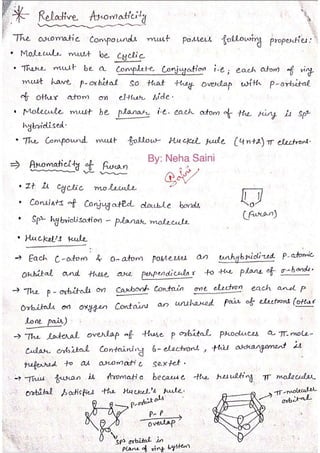 Relative Aromaticity
The aromatic compounds must possess following properties:
• Molecule must be Cyclic
• There must be a Complete Conjugation i.e; each atom of ring
must have p-orbital so that they overlap with p-orbital
of other atom on either side.
• Molecule must be planar, i.e. each atom of the ring is sp²
hybridised.
• The Compound must follow Huckel rule (4n+2)π electrons.
⇒ Aromaticity of Furan
By: Neha Saini
Saini
• It is cyclic molecule
• Consists of Conjugated double bonds
(furan)
• Sp² hybridisation - planar molecule
• Huckel's rule
→ Each C-atom & O-atom possesses an unhybridized p-atomic
orbital and these are perpendicular to the plane of σ-bonds.
→ The p-orbitals on Carbon Contain one electron each and p
Orbitals on oxygen Contains an unshared pair of electrons (other
lone pair)
→ The lateral overlap of these p orbital produces a π-mole-
cular orbital Containing 6-electrons, this arrangement is
referred to as aromatic sextet.
→ Thus furan is Aromatic because the resulting π molecular
orbital satisfies the Huckel's rule.
p-orbitals
P-P
overlap
π-molecular
orbital
sp² orbital in
Plane of ring system